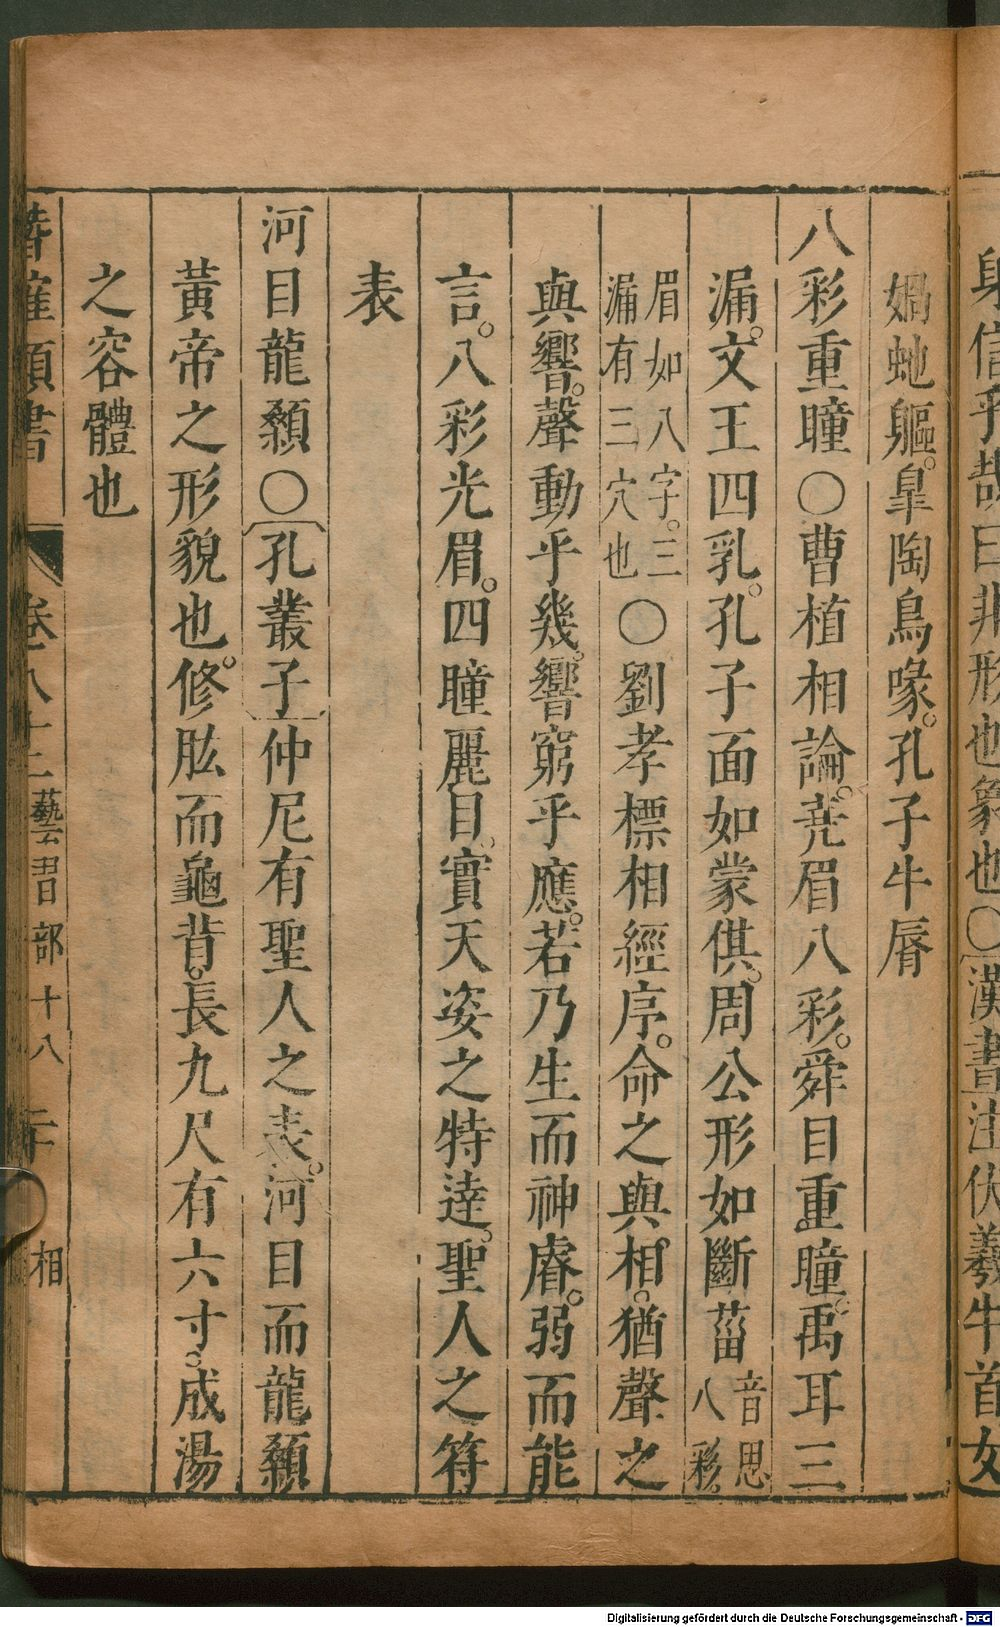 身信乎哉曰非形也象也〇漢書注伏羲牛首女
媧虵軀。皐陶鳥喙。孔子牛脣
八彩重瞳〇曹植相論。堯眉八彩。舜目重瞳。禹耳三
漏。文王四乳。孔子面如蒙倛。周公形如斷菑音思八彩。
眉如八字。三漏有三穴也〇劉孝標相經序。命之與相。猶聲之
與響。聲動乎幾。響窮乎應。若乃生而神睿。弱而能
言。八彩光眉。四瞳麗目。實天姿之特達。聖人之符
表
河目龍顙〇孔叢子仲尼有聖人之表。河目而龍顙
黃帝之形貌也。修肱而龜背。長九尺有六寸。成湯
之容體也
類書 卷 八十二 藝習部十八 二十 相
Digitalisierung gefördert durch die Deutsche Forschungsgemeinschaft - DFG